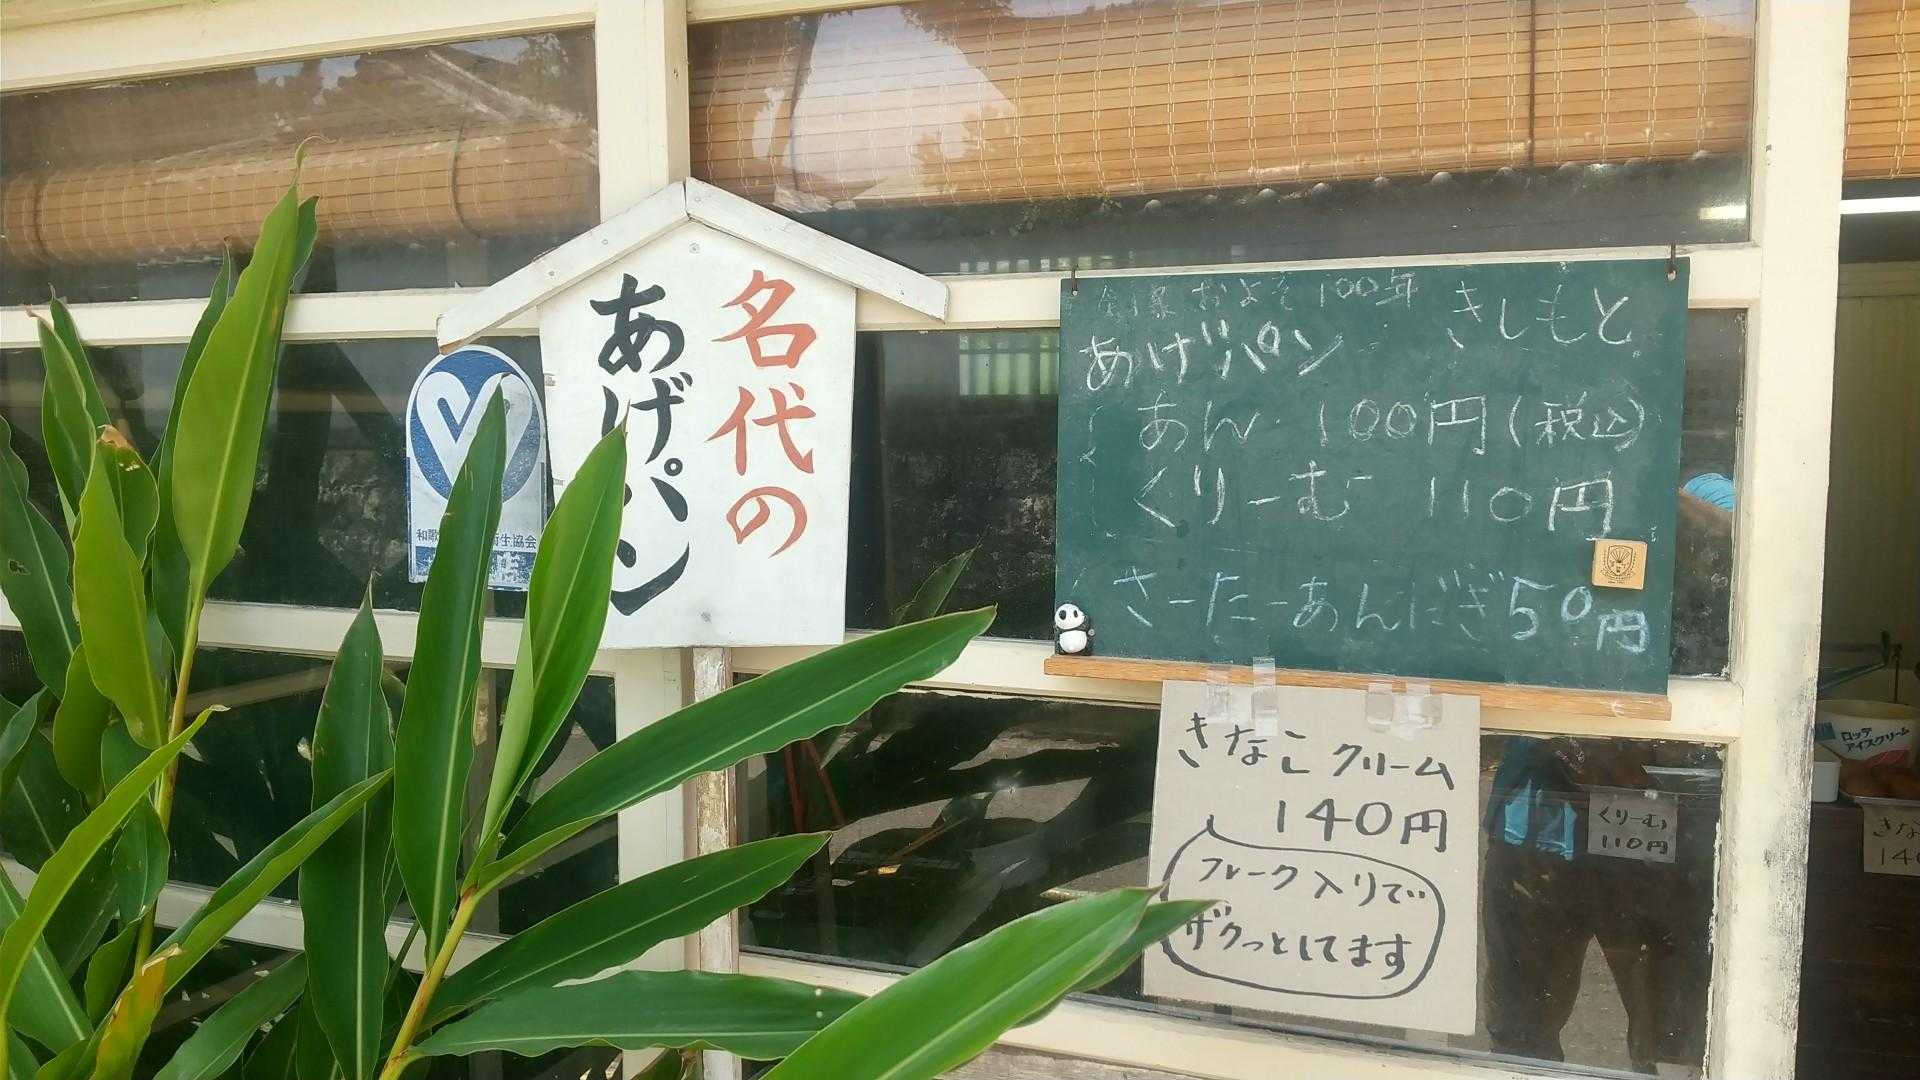 名代の
あげパン
創業 およそ 100年 きしもと
あげパン
あん 100円(税込)
くりーむ 110円
さーたーあんにぎ50円
きなこクリーム
140円
フレーク入りで
ザクっとしてます
和歌
衛生協会
くりーむ
110円
ロッテ
アイスクリーム
きな
14